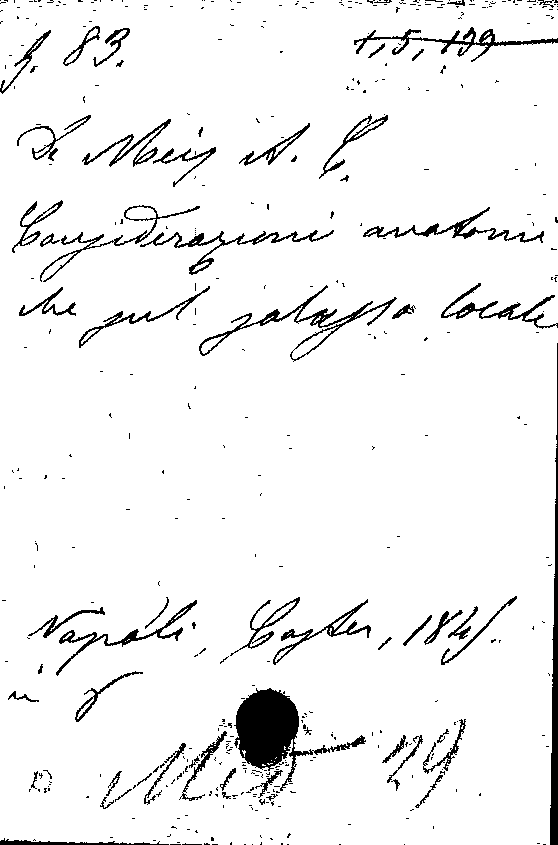 g. 83.
1, 5, 139
De Meis A. C.
Considerazioni anatomi
che sul salasso locale
Napoli, Coster, 184
in 8
Med 29